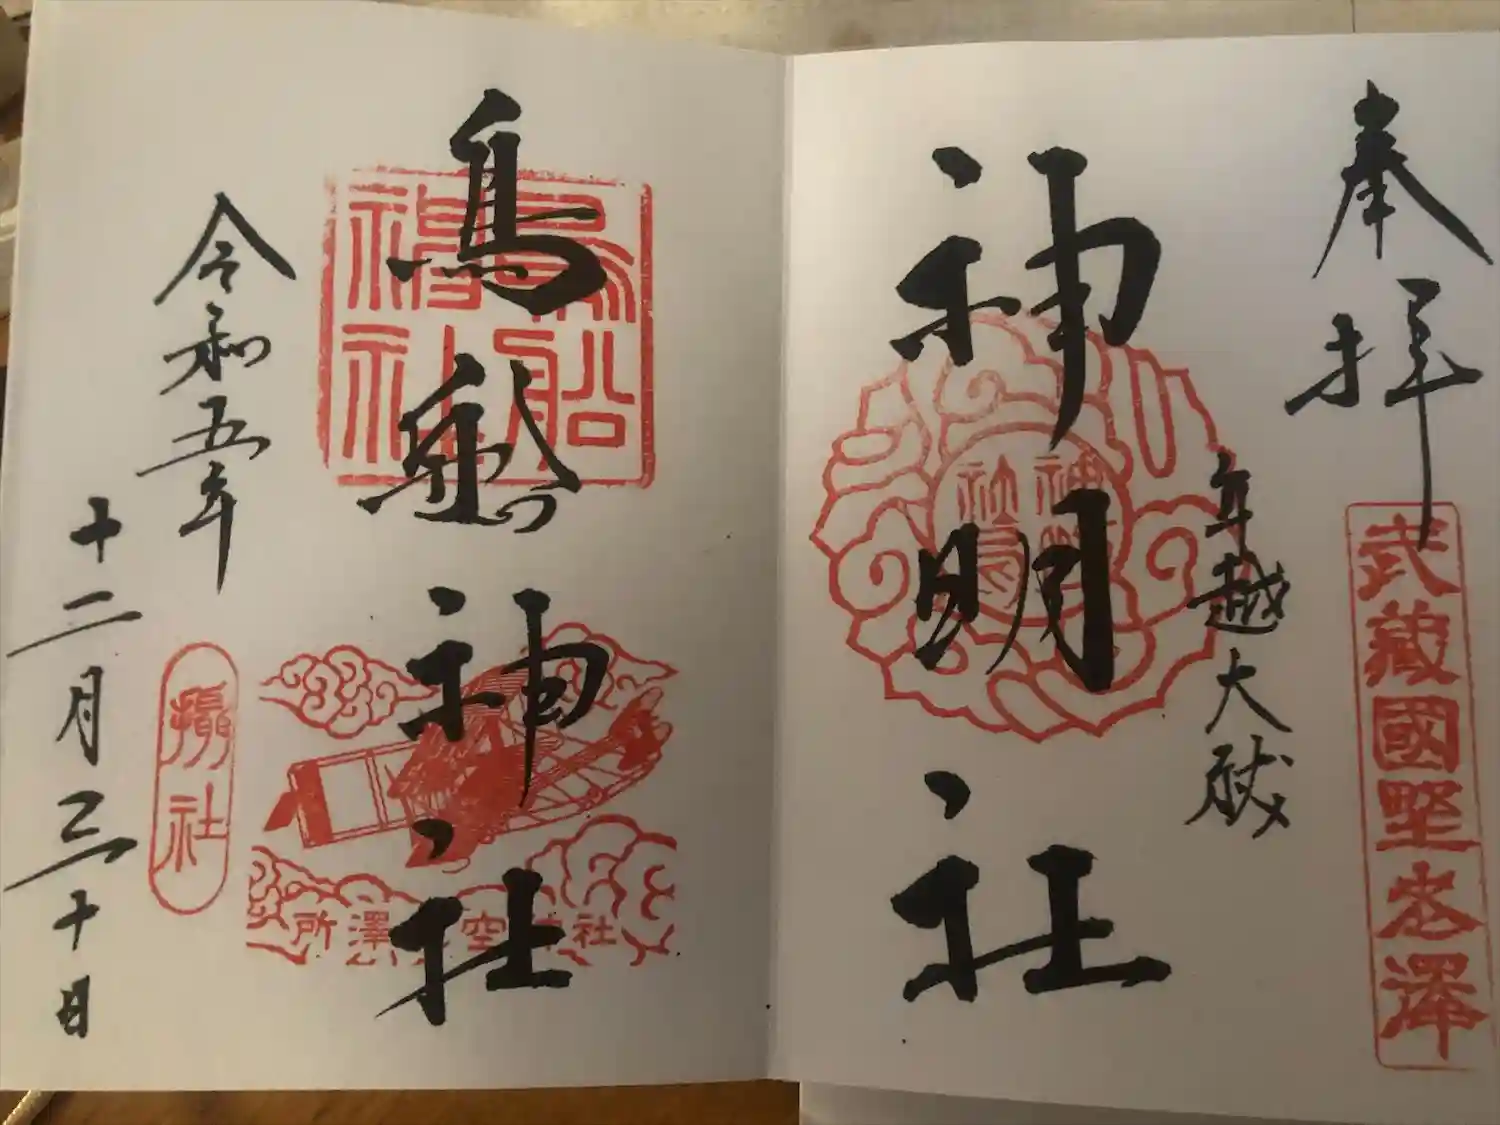 奉拝
武藏國埜老澤
年越大祓
神明社
鳥舩神社
鳥船
神社
所澤空社
攝社
令和五年
十二月三十日